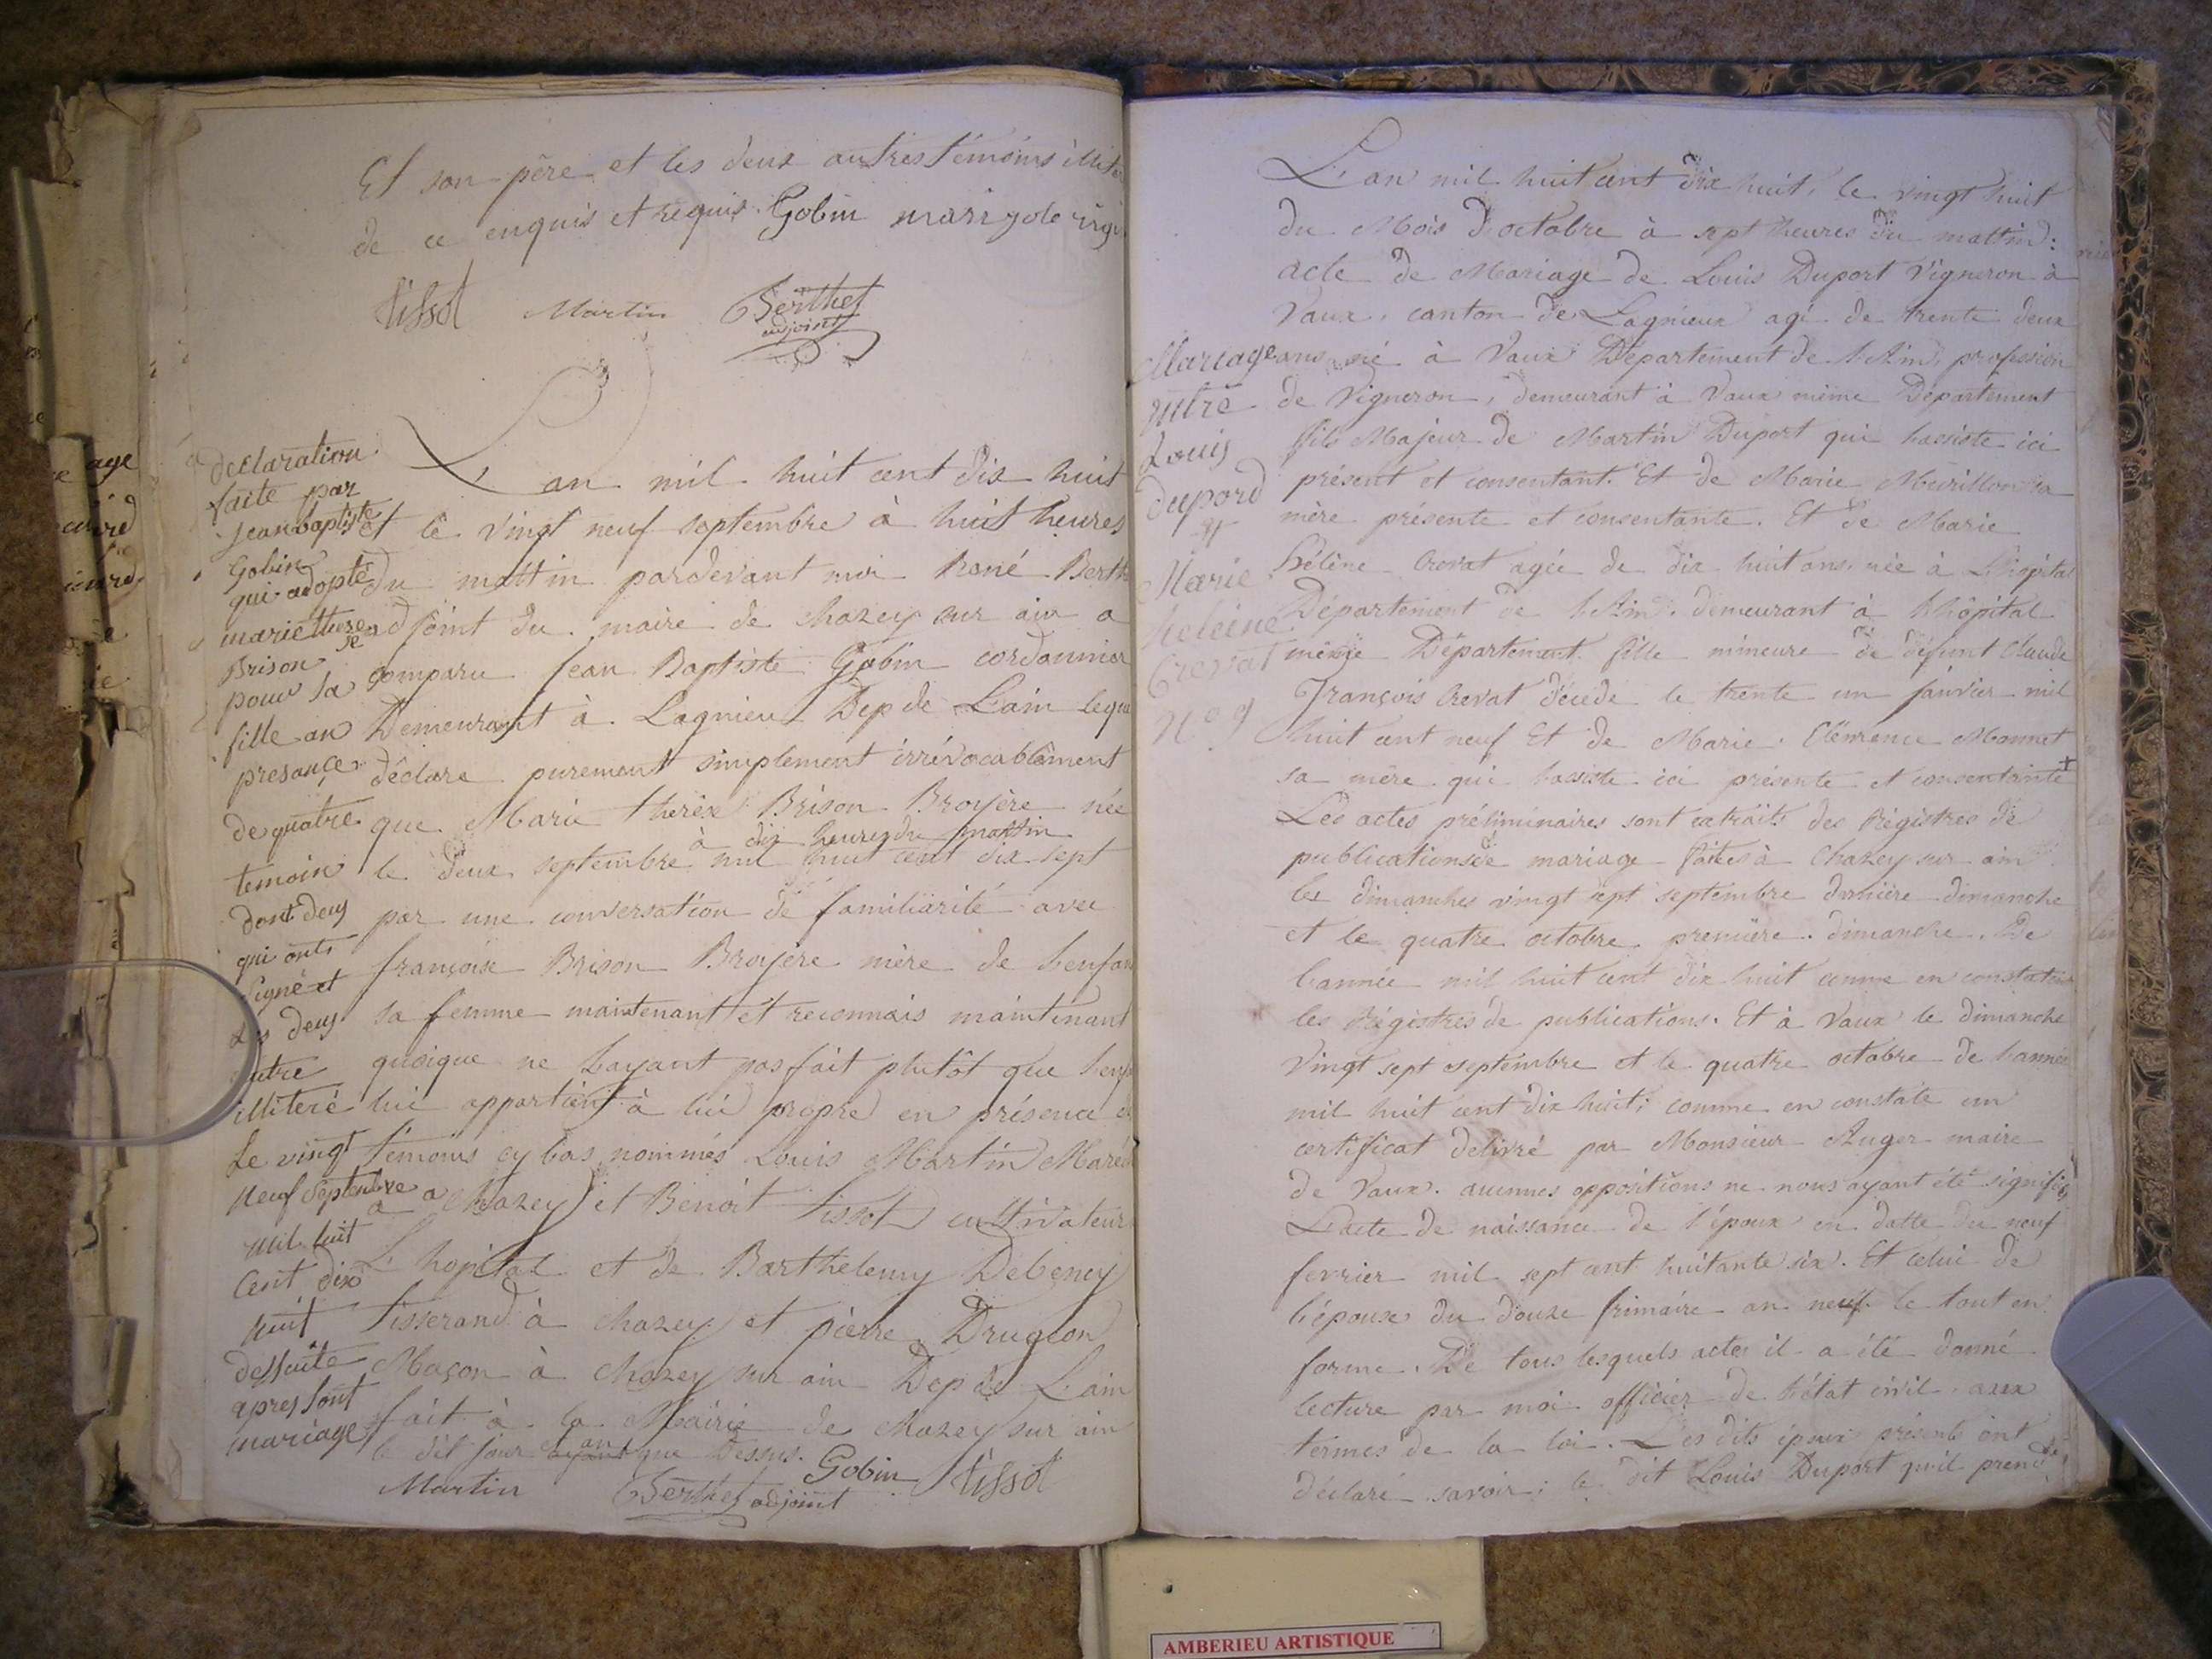 Et son père et les deux autres témoins illite
de ce enquis et requis. Gobin
Tissot Martin Berthet
adjoint
declaration
faite par
Jean baptiste
Gobin
qui adopté
marie therese
Brison
pour sa
fille an
presance
de quatre
temoin
dont deus
qui onts
signé et
les deus
autre
illiteré
Le vingt
neuf septembre
mil huit
cent dix
huit
dessuite
apres sont
mariage
L'an mil huit cent dix huit
et le vingt neuf septembre à huit heures
du mattin pardevant moi Rané Berth
adjoint du maire de chazey sur ain a
comparu Jean Baptiste Gobin cordonnier
Demeurant à Lagnieu Dep de L'ain lequ
déclare purement simplement irrévocablement
que Marie thérèse Brison Broyère née
à dix heures du mattin
le deux septembre mil huit cent dix sept
par une conversation de familiarité avec
françoise Brison Broyère mère de l'enfan
sa femme maintenant et reconnais maintenant
quoique ne l'ayant pas fait plutôt que l'enf
lui appartient à lui propre en présence
témoins cy bas nommés Louis Martin Maréc
a Chazey et Benoit Tissot cultivateur
à L'hopital et de Barthelemy Debeney
Tisserand à chazey et pierre Drugeon
Maçon à chazey sur ain Dep de L'ain
fait à la Mairie de chazey sur ain
le dit jour an que dessus. Gobin Tissot
Martin Berthet adjoint
Mariage
entre
Louis
dupord
et
Marie
heleine
Crevat
N° 9
L'an mil huit cent dix huit, le vingt huit
du Mois d'octobre à sept heures du mattin:
acte de Mariage de Louis Duport Vigneron à
Vaux, canton de Lagnieux agé de trente deux
ans né à Vaux Département de l'Ain, profession
de Vigneron, demeurant à Vaux même Département
fils Majeur de Martin Duport qui l'assiste ici
présent et consentant. Et de Marie Mérillon sa
mère présente et consentante. Et de Marie
hélène Crevat agée de dix huit ans née à L'hôpital
Département de l'Ain. demeurant à l'hôpital
même Département fille mineure de défunt Claude
François Crevat décédé le trente un janvier mil
huit cent neuf Et de Marie Clémence Monnet
sa mère qui l'assiste ici présente et consentante +
Les actes préliminaires sont extraits des Régistres de
publications de mariage faites à Chazey sur ain
les dimanches vingt sept septembre dernière dimanche
et le quatre octobre première dimanche. De
l'année mil huit cent dix huit comme en constatent
les Régistres de publications. Et à Vaux le dimanche
vingt sept septembre et le quatre octobre de l'année
mil huit cent dix huit; comme en constate un
certificat délivré par Monsieur Auger maire
de Vaux. aucunes oppositions ne nous ayant été signifiés
L'acte de naissance de l'époux en datte du neuf
fevrier mil sept cent huitante six. Et celui de
l'épouse du douze frimaire an neuf le tout en
forme. De tous lesquels actes il a été donné
lecture par moi officier de l'état civil, aux
termes de la loi. Les dits époux présents ont
déclaré savoir; le dit Louis Duport qu'il prend
AMBERIEU ARTISTIQUE